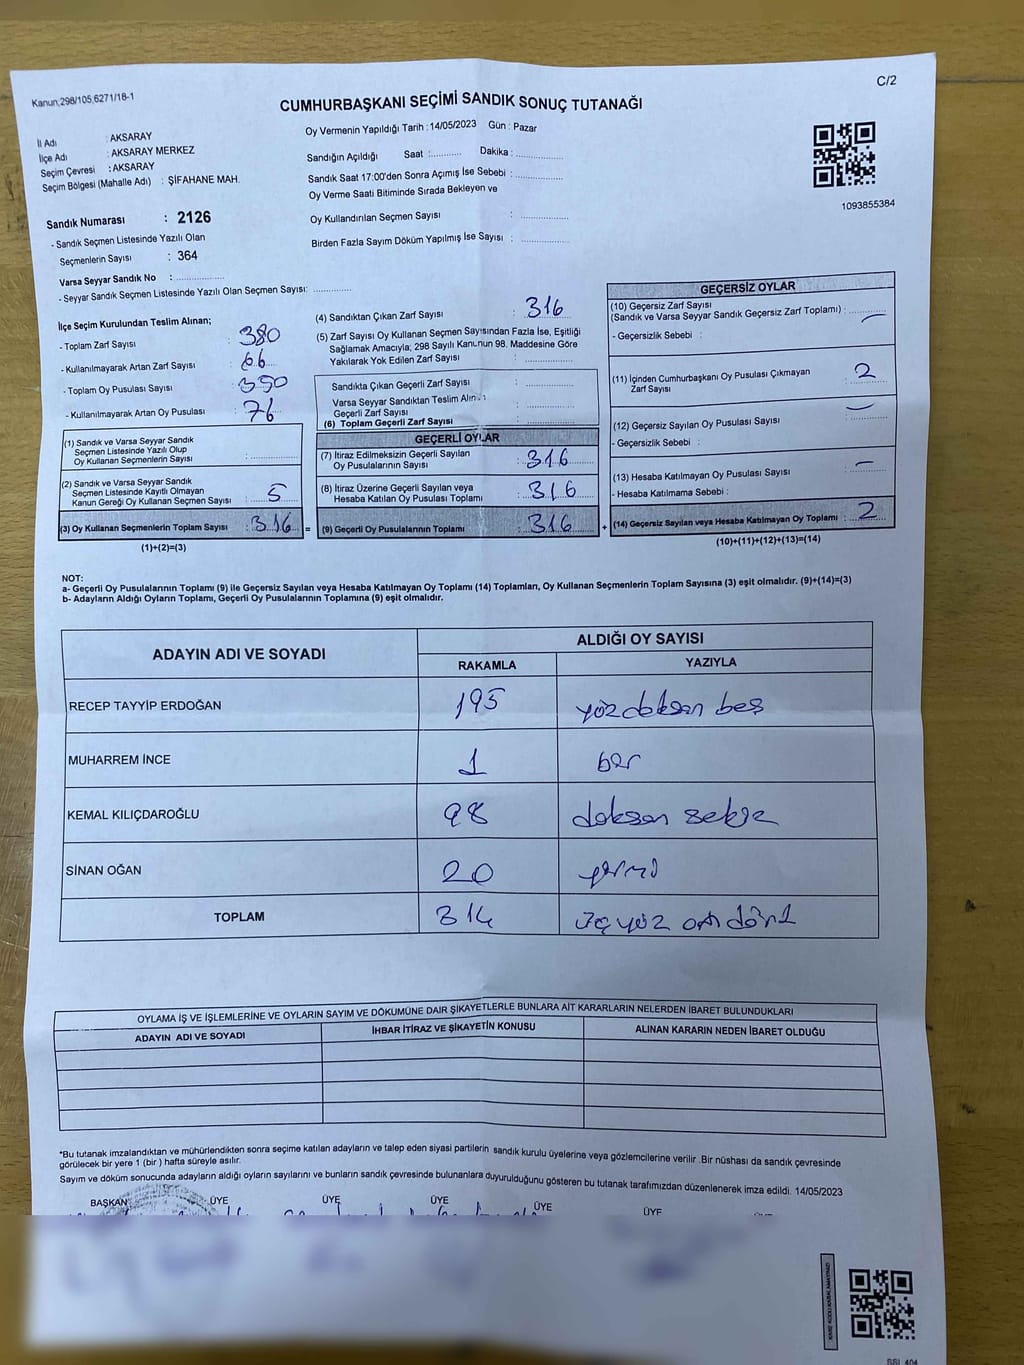 C/2
Kanun;298/105,6271/18-1
CUMHURBAŞKANI SEÇİMİ SANDIK SONUÇ TUTANAĞI
İl Adı : AKSARAY
İlçe Adı : AKSARAY MERKEZ
Seçim Çevresi : AKSARAY
Seçim Bölgesi (Mahalle Adı) : ŞİFAHANE MAH.
Sandık Numarası : 2126
- Sandık Seçmen Listesinde Yazılı Olan
Seçmenlerin Sayısı : 364
Varsa Seyyar Sandık No : ..............
- Seyyar Sandık Seçmen Listesinde Yazılı Olan Seçmen Sayısı: ............
Oy Vermenin Yapıldığı Tarih : 14/05/2023 Gün : Pazar
Sandığın Açıldığı Saat :.......... Dakika : ..............
Sandık Saat 17:00'den Sonra Açımış İse Sebebi : ..............
Oy Verme Saati Bitiminde Sırada Bekleyen ve
Oy Kullandırılan Seçmen Sayısı : ..............
Birden Fazla Sayım Döküm Yapılmış İse Sayısı : ..............
1093855384
İlçe Seçim Kurulundan Teslim Alınan;
- Toplam Zarf Sayısı : 380
- Kullanılmayarak Artan Zarf Sayısı : 66
- Toplam Oy Pusulası Sayısı : 390
- Kullanılmayarak Artan Oy Pusulası : 76
(1) Sandık ve Varsa Seyyar Sandık
Seçmen Listesinde Yazılı Olup
Oy Kullanan Seçmenlerin Sayısı : ..............
(2) Sandık ve Varsa Seyyar Sandık
Seçmen Listesinde Kayıtlı Olmayan
Kanun Gereği Oy Kullanan Seçmen Sayısı : 5
(3) Oy Kullanan Seçmenlerin Toplam Sayısı : 316 =
(1)+(2)=(3)
(4) Sandıktan Çıkan Zarf Sayısı : 316
(5) Zarf Sayısı Oy Kullanan Seçmen Sayısından Fazla İse, Eşitliği
Sağlamak Amacıyla; 298 Sayılı Kanunun 98. Maddesine Göre
Yakılarak Yok Edilen Zarf Sayısı : ..............
Sandıkta Çıkan Geçerli Zarf Sayısı : ..............
Varsa Seyyar Sandıktan Teslim Alınan
Geçerli Zarf Sayısı : ..............
(6) Toplam Geçerli Zarf Sayısı : ..............
GEÇERLİ OYLAR
(7) İtiraz Edilmeksizin Geçerli Sayılan
Oy Pusulalarının Sayısı : 316
(8) İtiraz Üzerine Geçerli Sayılan veya
Hesaba Katılan Oy Pusulası Toplamı : 316
(9) Geçerli Oy Pusulalarının Toplamı : 316 +
GEÇERSİZ OYLAR
(10) Geçersiz Zarf Sayısı
(Sandık ve Varsa Seyyar Sandık Geçersiz Zarf Toplamı) : —
- Geçersizlik Sebebi :
(11) İçinden Cumhurbaşkanı Oy Pusulası Çıkmayan
Zarf Sayısı : 2
(12) Geçersiz Sayılan Oy Pusulası Sayısı : —
- Geçersizlik Sebebi :
(13) Hesaba Katılmayan Oy Pusulası Sayısı : —
- Hesaba Katılmama Sebebi :
(14) Geçersiz Sayılan veya Hesaba Katılmayan Oy Toplamı : 2
(10)+(11)+(12)+(13)=(14)
NOT:
a- Geçerli Oy Pusulalarının Toplamı (9) ile Geçersiz Sayılan veya Hesaba Katılmayan Oy Toplamı (14) Toplamları, Oy Kullanan Seçmenlerin Toplam Sayısına (3) eşit olmalıdır. (9)+(14)=(3)
b- Adayların Aldığı Oyların Toplamı, Geçerli Oy Pusulalarının Toplamına (9) eşit olmalıdır.
ADAYIN ADI VE SOYADI ALDIĞI OY SAYISI
RAKAMLA YAZIYLA
RECEP TAYYİP ERDOĞAN 195 yüzdoksan beş
MUHARREM İNCE 1 bir
KEMAL KILIÇDAROĞLU 98 doksan sekiz
SİNAN OĞAN 20 yirmi
TOPLAM 314 üçyüz on dört
OYLAMA İŞ VE İŞLEMLERİNE VE OYLARIN SAYIM VE DÖKÜMÜNE DAİR ŞİKAYETLERLE BUNLARA AİT KARARLARIN NELERDEN İBARET BULUNDUKLARI
ADAYIN ADI VE SOYADI İHBAR İTİRAZ VE ŞİKAYETİN KONUSU ALINAN KARARIN NEDEN İBARET OLDUĞU
*Bu tutanak imzalandıktan ve mühürlendikten sonra seçime katılan adayların ve talep eden siyasi partilerin sandık kurulu üyelerine veya gözlemcilerine verilir .Bir nüshası da sandık çevresinde
görülecek bir yere 1 (bir ) hafta süreyle asılır.
Sayım ve döküm sonucunda adayların aldığı oyların sayılarını ve bunların sandık çevresinde bulunanlara duyurulduğunu gösteren bu tutanak tarafımızdan düzenlenerek imza edildi. 14/05/2023
BAŞKAN ÜYE ÜYE ÜYE ÜYE ÜYE ÜYE